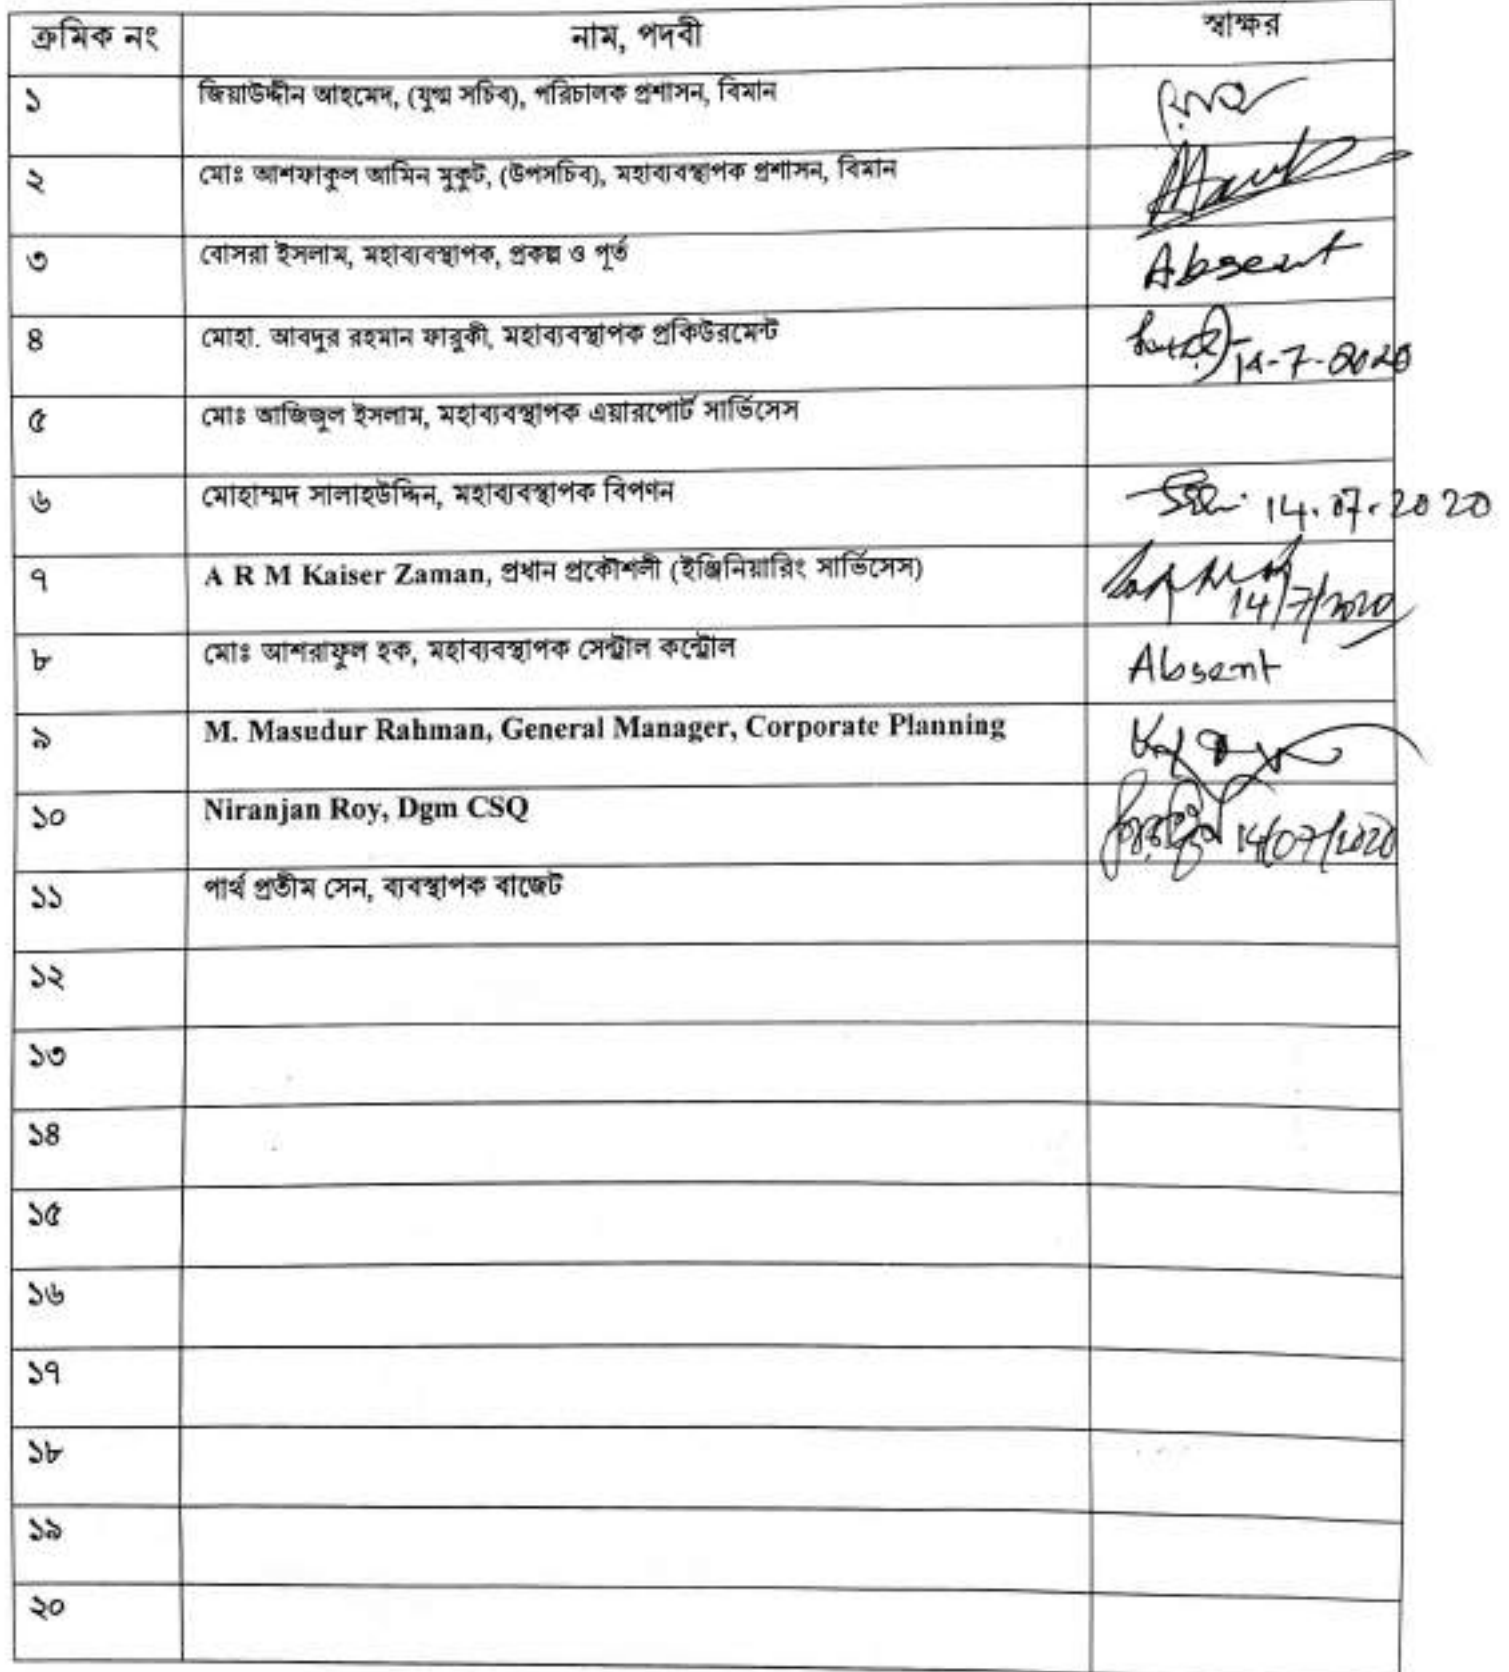 ক্রমিক নং নাম, পদবী স্বাক্ষর
১ জিয়াউদ্দীন আহমেদ, (যুগ্ম সচিব), পরিচালক প্রশাসন, বিমান
২ মোঃ আশফাকুল আমিন মুকুট, (উপসচিব), মহাব্যবস্থাপক প্রশাসন, বিমান
৩ বোসরা ইসলাম, মহাব্যবস্থাপক, প্রকল্প ও পূর্ত Absent
৪ মোহা. আবদুর রহমান ফারুকী, মহাব্যবস্থাপক প্রকিউরমেন্ট 14-7-2020
৫ মোঃ আজিজুল ইসলাম, মহাব্যবস্থাপক এয়ারপোর্ট সার্ভিসেস
৬ মোহাম্মদ সালাহউদ্দিন, মহাব্যবস্থাপক বিপণন 14.07.2020
৭ A R M Kaiser Zaman, প্রধান প্রকৌশলী (ইঞ্জিনিয়ারিং সার্ভিসেস) 14/7/2020
৮ মোঃ আশরাফুল হক, মহাব্যবস্থাপক সেন্ট্রাল কন্ট্রোল Absent
৯ M. Masudur Rahman, General Manager, Corporate Planning
১০ Niranjan Roy, Dgm CSQ 14/07/2020
১১ পার্থ প্রতীম সেন, ব্যবস্থাপক বাজেট
১২
১৩
১৪
১৫
১৬
১৭
১৮
১৯
২০